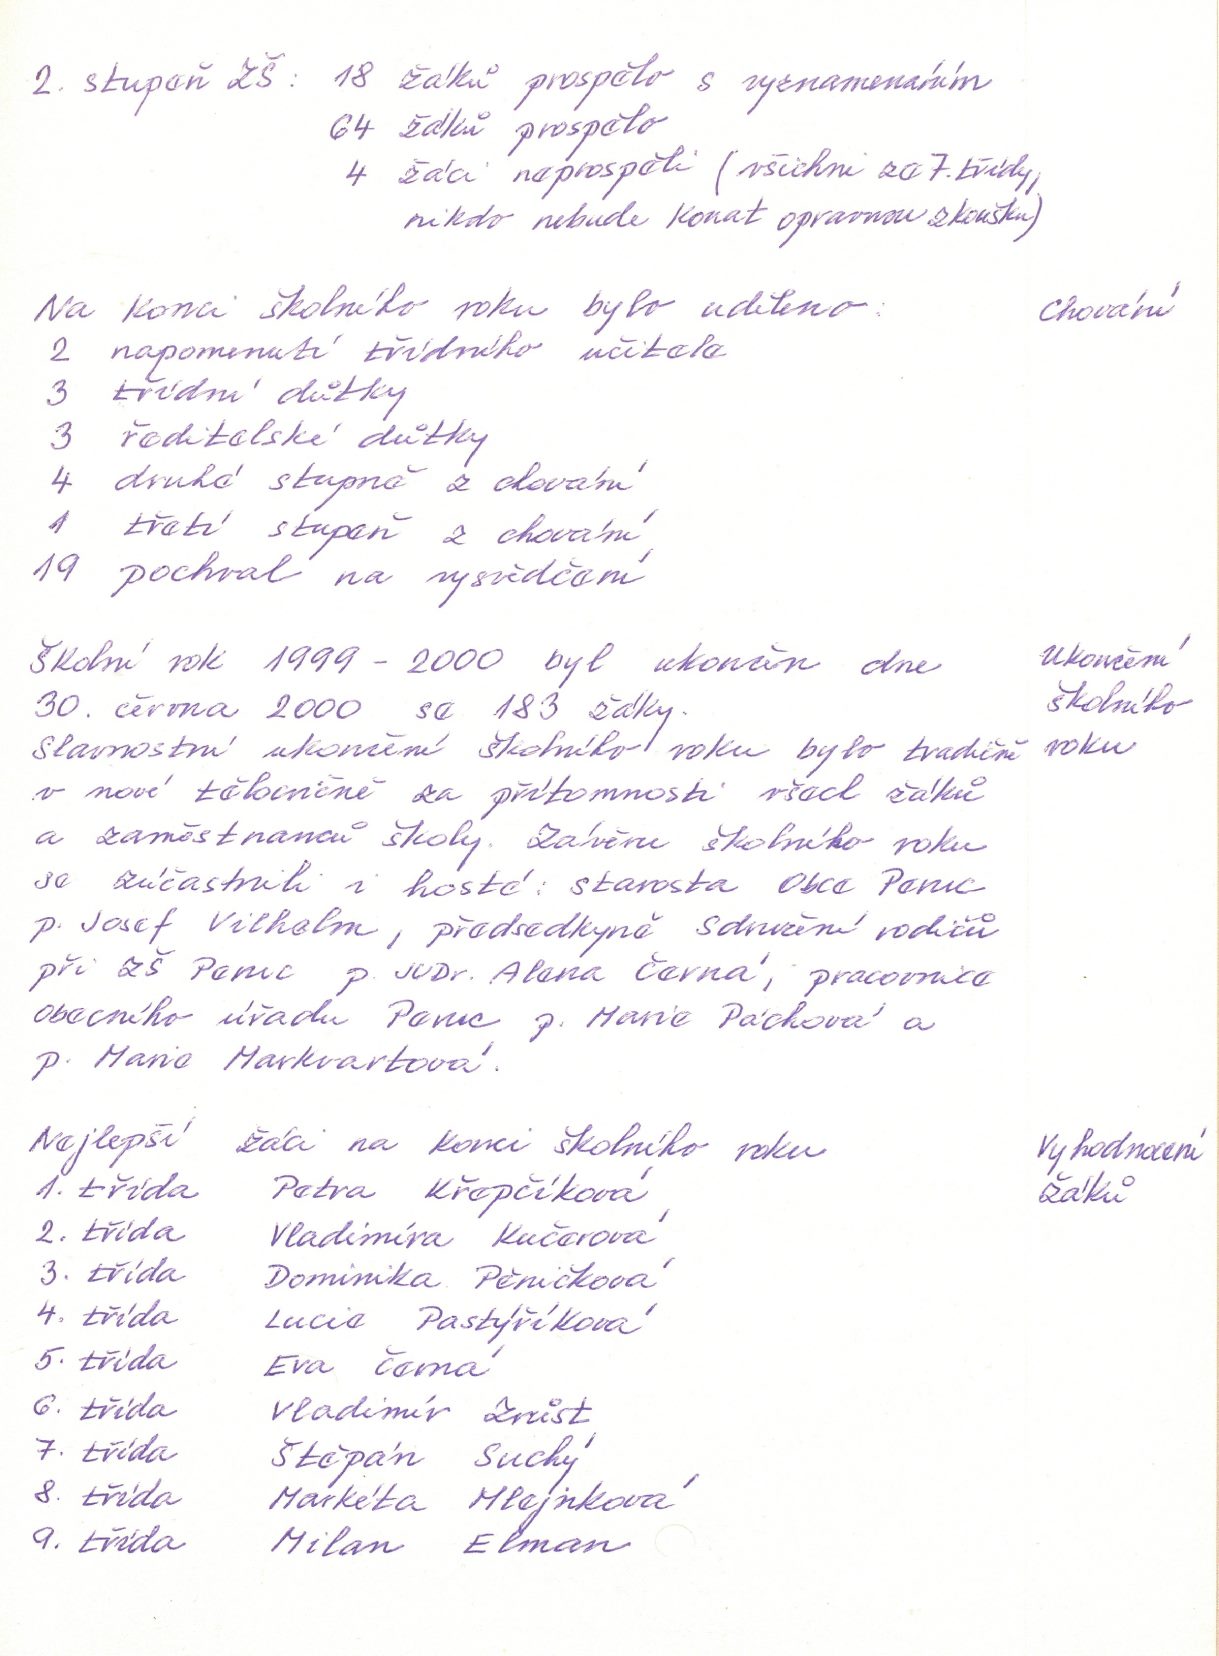 2. stupeň ZŠ: 18 žáků prospělo s vyznamenáním
64 žáků prospělo
4 žáci neprospěli (všichni ze 7. třídy,
nikdo nebude konat opravnou zkoušku)
Na konci školního roku bylo uděleno: Chování
2 napomenutí třídního učitele
3 třídní důtky
3 ředitelské důtky
4 druhé stupně z chování
1 třetí stupeň z chování
19 pochval na vysvědčení
Školní rok 1999 - 2000 byl ukončen dne Ukončení
30. června 2000 se 183 žáky. školního
Slavnostní ukončení školního roku bylo tradičně roku
v nové tělocvičně za přítomnosti všech žáků
a zaměstnanců školy. Závěru školního roku
se zúčastnili i hosté: starosta Obce Peruc
p. Josef Vilhelm, předsedkyně Sdružení rodičů
při ZŠ Peruc p. JUDr. Alena Černá, pracovnice
Obecního úřadu Peruc p. Marie Páchová a
p. Marie Markvartová.
Nejlepší žáci na konci školního roku Vyhodnocení
1. třída Petra Křepčíková žáků
2. třída Vladimíra Kučerová
3. třída Dominika Pěničková
4. třída Lucie Pastýříková
5. třída Eva Černá
6. třída Vladimír Zrůst
7. třída Štěpán Suchý
8. třída Markéta Mlejnková
9. třída Milan Elman